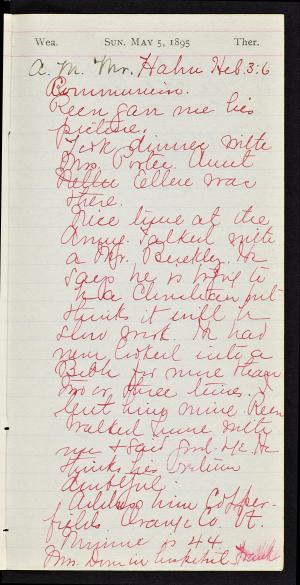 Wea. SUN. MAY 5, 1895 Ther.
A. M. Mr. Hahn Heb. 3:6
Communion.
Reen gave me his
picture.
Took dinner with
Mrs. Porter. Aunt
Ellen was
there.
Nice time at the
Army. Talked with
a Mr. Buckley. He
says he is trying to
be a Christian but
thinks it will be
slow work. He had
never looked into a
Bible for more than
two or three times. I
lent him mine. Reen
walked home with
me & said good-bye. He
thinks his return
doubtful.
Address him Copper-
field. Orange Co. Vt.
Minnie is 44
Mrs.